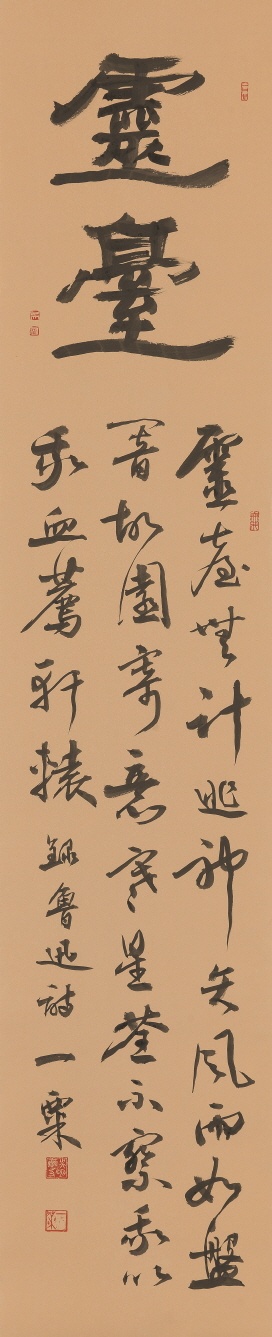 靈臺
靈臺無計逃神矢風雨如盤
闇故園寄意寒星荃不察我以
我血薦軒轅 錄魯迅詩 一粟